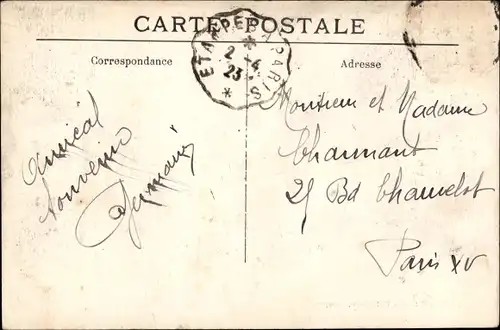 CARTE POSTALE
ETAMPES A PARIS
2 - 4
23
Correspondance
Adresse
Amical
souvenir
Germain
Monsieur et Madame
Charmant
25 Bd Chamelot
Paris XV